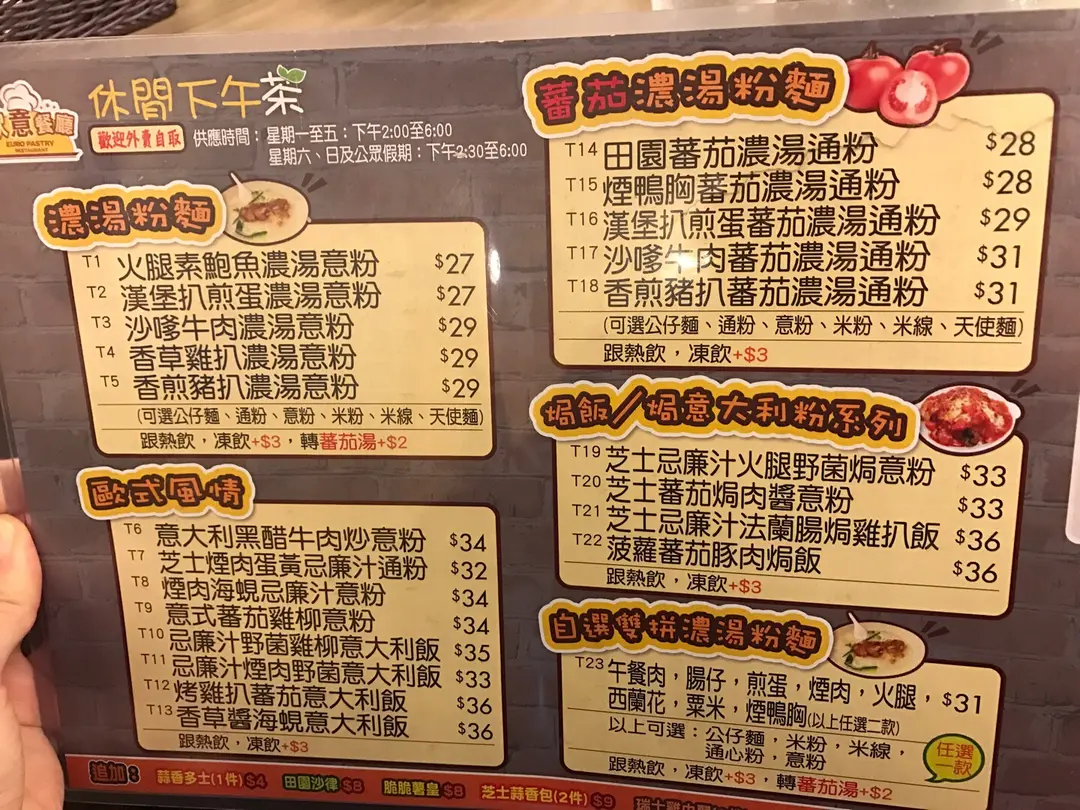 意餐廳
EURO PASTRY
RESTAURANT
休閒下午茶
歡迎外賣自取
供應時間：星期一至五：下午2:00至6:00
星期六、日及公眾假期：下午2:30至6:00
濃湯粉麵
T1 火腿素鮑魚濃湯意粉 $27
T2 漢堡扒煎蛋濃湯意粉 $27
T3 沙嗲牛肉濃湯意粉 $29
T4 香草雞扒濃湯意粉 $29
T5 香煎豬扒濃湯意粉 $29
(可選公仔麵、通粉、意粉、米粉、米線、天使麵)
跟熱飲，凍飲+$3，轉蕃茄湯+$2
歐式風情
T6 意大利黑醋牛肉炒意粉 $34
T7 芝士煙肉蛋黃忌廉汁通粉 $32
T8 煙肉海蜆忌廉汁意粉 $34
T9 意式蕃茄雞柳意粉 $34
T10 忌廉汁野菌雞柳意大利飯 $35
T11 忌廉汁煙肉野菌意大利飯 $33
T12 烤雞扒蕃茄意大利飯 $36
T13 香草醬海蜆意大利飯 $36
跟熱飲，凍飲+$3
蕃茄濃湯粉麵
T14 田園蕃茄濃湯通粉 $28
T15 煙鴨胸蕃茄濃湯通粉 $28
T16 漢堡扒煎蛋蕃茄濃湯通粉 $29
T17 沙嗲牛肉蕃茄濃湯通粉 $31
T18 香煎豬扒蕃茄濃湯通粉 $31
(可選公仔麵、通粉、意粉、米粉、米線、天使麵)
跟熱飲，凍飲+$3
焗飯/焗意大利粉系列
T19 芝士忌廉汁火腿野菌焗意粉 $33
T20 芝士蕃茄焗肉醬意粉 $33
T21 芝士忌廉汁法蘭腸焗雞扒飯 $36
T22 菠蘿蕃茄豚肉焗飯 $36
跟熱飲，凍飲+$3
自選雙拼濃湯粉麵
T23 午餐肉，腸仔，煎蛋，煙肉，火腿， $31
西蘭花，粟米，煙鴨胸(以上任選二款)
以上可選：公仔麵，米粉，米線，
通心粉，意粉
任選一款
跟熱飲，凍飲+$3，轉蕃茄湯+$2
追加： 蒜香多士(1件) $4 田園沙律 $8 脆脆薯皇 $8 芝士蒜香包(2件) $9